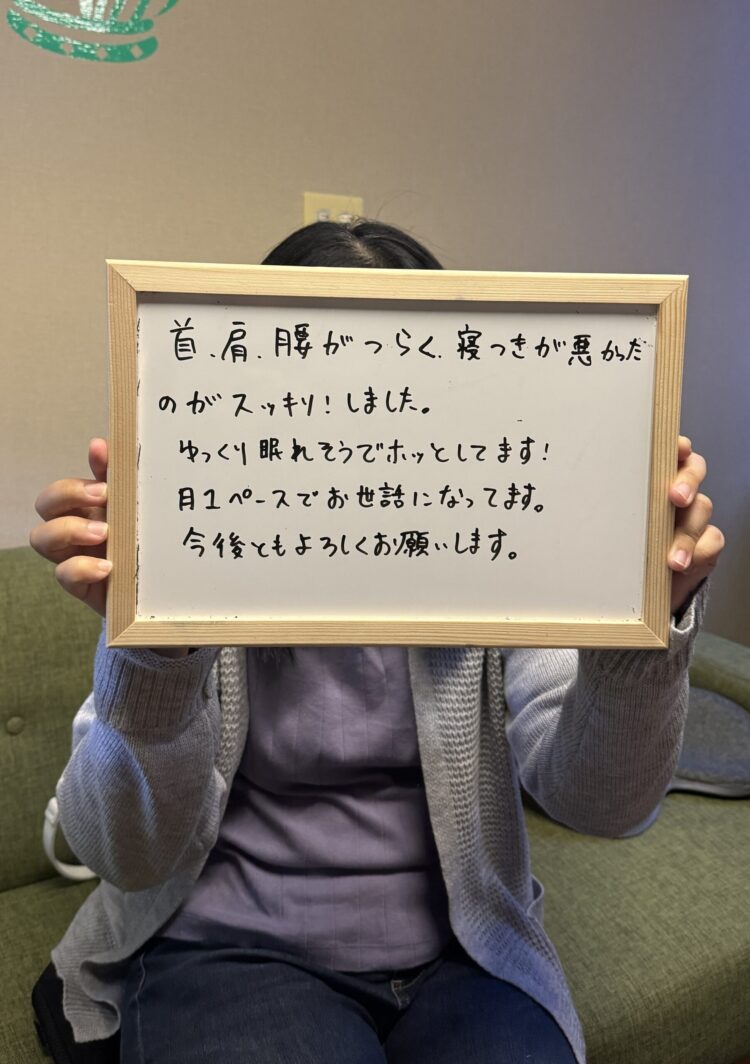 首、肩、腰がつらく、寝つきが悪かった
のがスッキリ！しました。
ゆっくり眠れそうでホッとしてます！
月１ペースでお世話になってます。
今後ともよろしくお願いします。